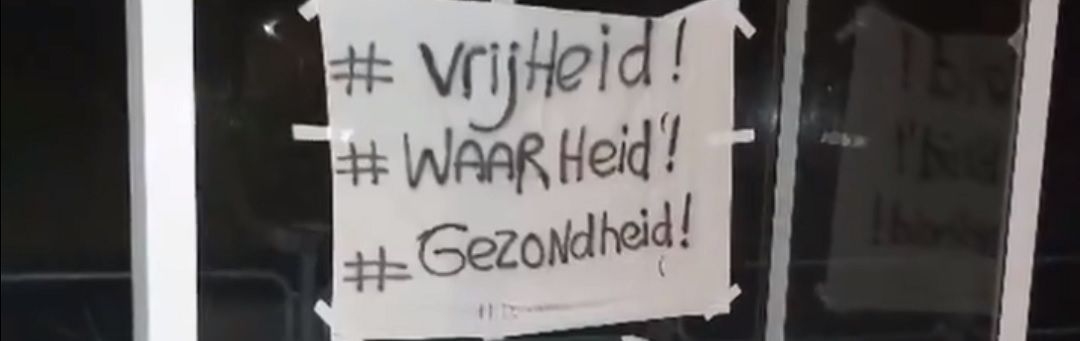 # VrijHeid!
# WAARHeid!
# GeZoNdheid!